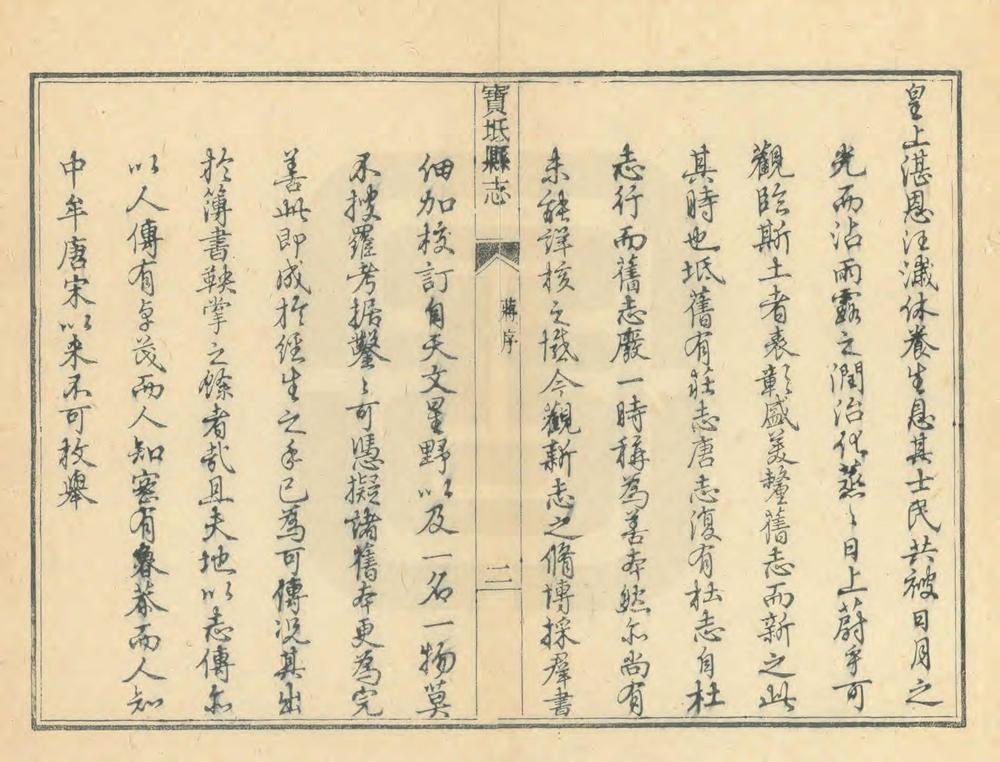 皇上湛恩汪濊休養生息其士民共被日月之
光而沾雨露之潤治化蒸〻日上蔚乎可
觀臨斯土者表彰盛美釐舊志而新之此
其時也坻舊有莊志唐志復有杜志自杜
志行而舊志廢一時稱為善本然尔尚有
未能詳核之憾今觀新志之脩博採羣書
寶坻縣志
蔣序
二
細加校訂自天文星野以及一名一物莫
不搜羅考据鑿〻可憑擬諸舊本更為完
善此即成於經生之手已為可傳況其出
於簿書鞅掌之餘者哉且夫地以志傳尔
以人傳有卓茂而人知密有魯恭而人知
中牟唐宋以来不可枚舉